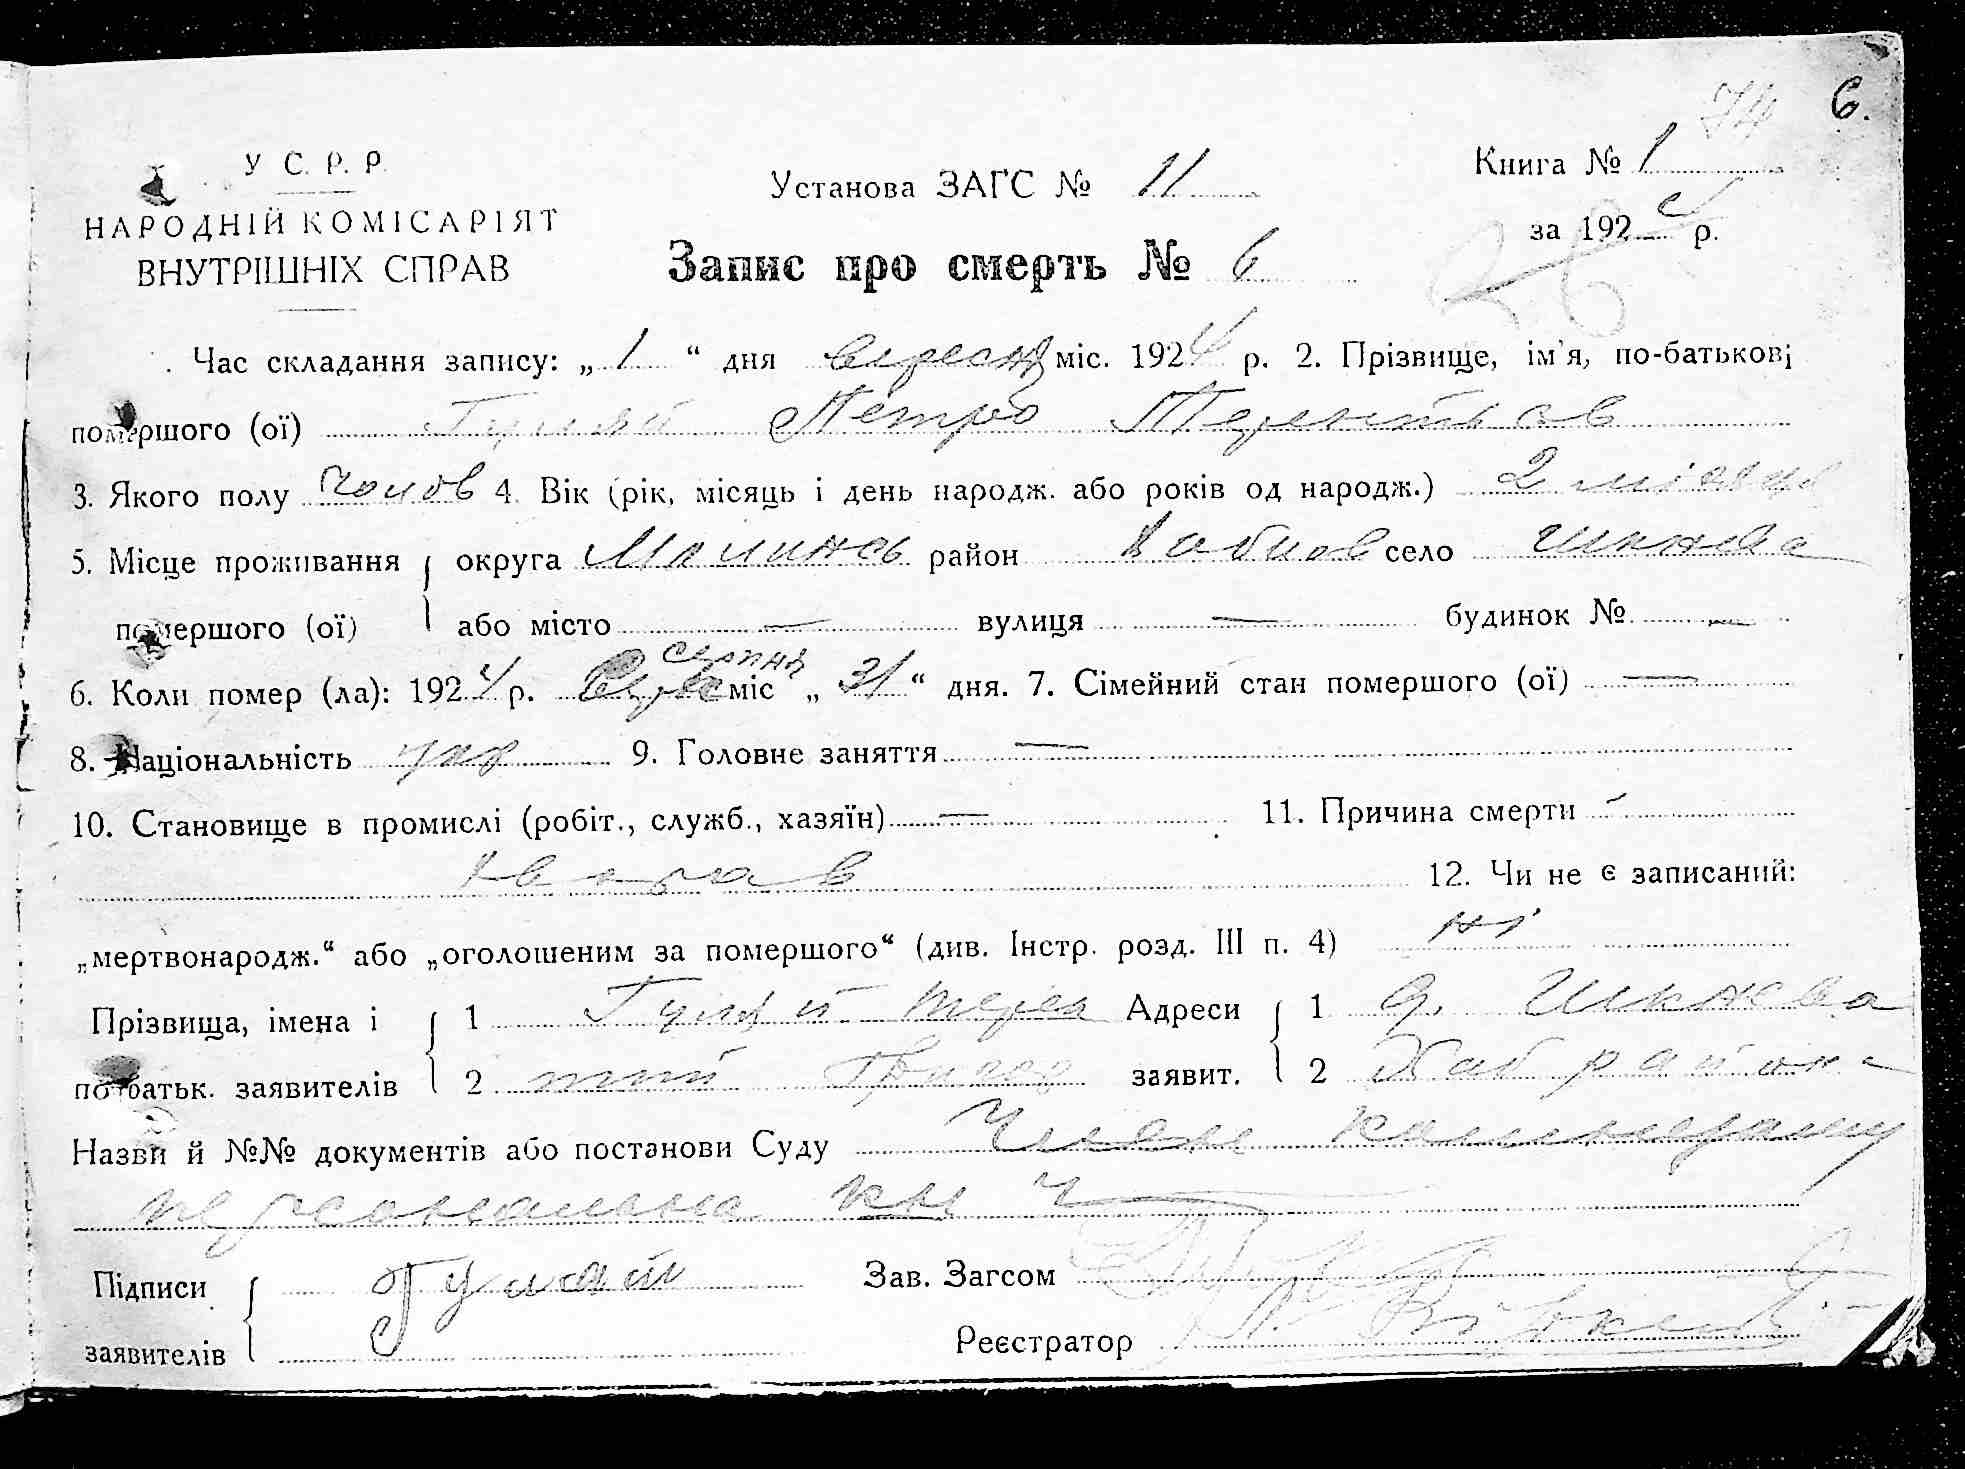 74 6.
У С. Р. Р.
НАРОДНІЙ КОМІСАРІЯТ
ВНУТРІШНІХ СПРАВ
Установа ЗАГС № 11
Книга № 1
за 1924 р.
Запис про смерть № 6
Час складання запису: „ 1 “ дня вересня міс. 1924 р. 2. Прізвище, ім'я, по-батькові
помершого (ої) Гуляй Петро Терентьєв
3. Якого полу чолов 4. Вік (рік, місяць і день народж. або років од народж.) 2 місяця
5. Місце проживання округа район село Шкнева
помершого (ої) або місто — вулиця — будинок № —
6. Коли помер (ла): 1924 р. серпня міс „ 31 “ дня. 7. Сімейний стан помершого (ої) —
8. Національність укр 9. Головне заняття —
10. Становище в промислі (робіт., служб., хазяїн) — 11. Причина смерти
хворав 12. Чи не є записаний:
„мертвонародж.“ або „оголошеним за помершого“ (див. Інстр. розд. III п. 4) ні
Прізвища, імена і 1 Гуляй Тере Адреси 1 Шкнева
по-батьк. заявителів 2 тий заявит. 2 Хаб района
Назви й №№ документів або постанови Суду
персональна кн Ч
Підписи Гуляй Зав. Загсом
заявителів Реєстратор